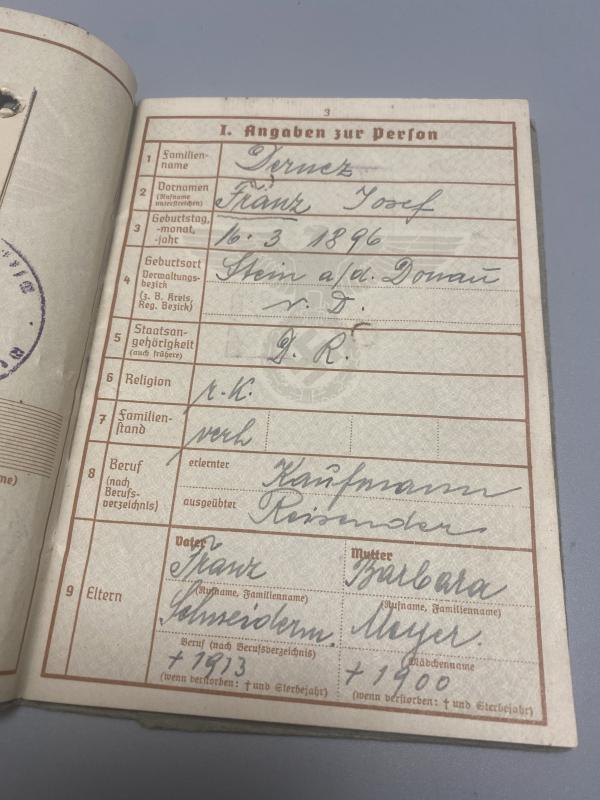 3
I. Angaben zur Person
1 Familien-
name
Dernez
2 Vornamen
(Rufname
unterstreichen)
Franz Josef
3 Geburtstag,
-monat,
-jahr
16. 3 1896
4 Geburtsort
Verwaltungs-
bezirk
(z. B. Kreis,
Reg. Bezirk)
Stein a/d. Donau
N. D.
5 Staatsan-
gehörigkeit
(auch frühere)
D. R.
6 Religion
r. K.
7 Familien-
stand
verh
8 Beruf
(nach
Berufs-
verzeichnis)
erlernter
Kaufmann
ausgeübter
Reisender
9 Eltern
Vater
Mutter
Franz
Barbara
(Rufname, Familienname)
(Rufname, Familienname)
Schneiderm.
Meyer.
Beruf (nach Berufsverzeichnis)
Mädchenname
† 1913
† 1900
(wenn verstorben: † und Sterbejahr)
(wenn verstorben: † und Sterbejahr)